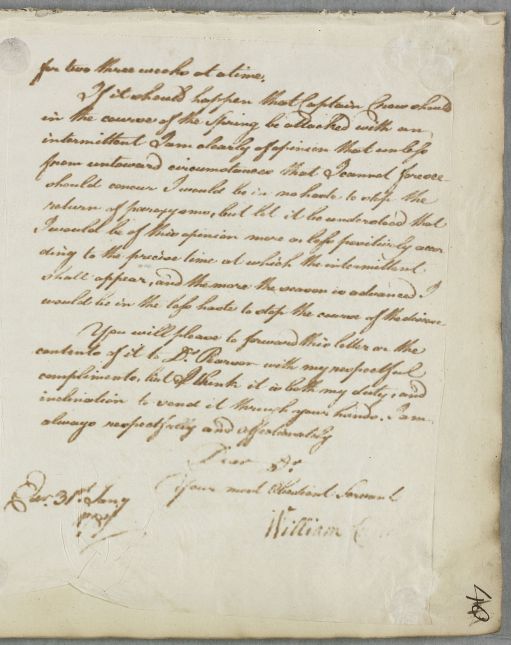 for two three weeks at a time.
If it should happen that Captain Crow should
in the course of the Spring be attacked with an
intermittent I am clearly of opinion that unless
from untoward circumstances that I cannot foresee
should concur I would be in no haste to stop the
return of paroxysms, but let it be understood that
I would be of this opinion more or less positively accor
ding to the precise time at which the intermittent
shall appear, and the more the season is advanced I
would be in the less haste to stop the course of the disease
You will please to forward this letter or the
contents of it to Dr. Pearson with my respectful
compliments, but I think it is both my duty, and
inclination to send it through your hands. I am
always respectfully and affectionately
Dear Sr.
Your most Obedient Servant
31st. Jany
William
40